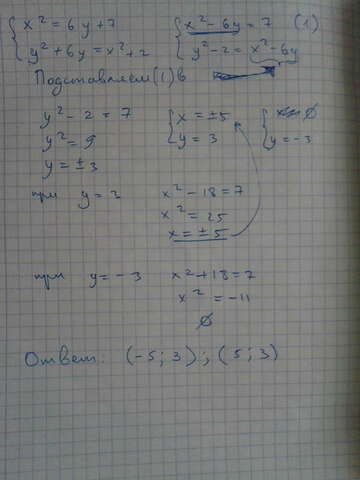 { x² = 6y+7    { x²-6y = 7 (1)
{ y²+6y = x²+2    { y²-2 = x²-6y
Подставляем (1) в
y²-2 = 7    { x = ±5    { ∅
y² = 9    { y = 3    { y = -3
y = ±3
при y = 3    x²-18 = 7
x² = 25
x = ±5
при y = -3    x²+18 = 7
x² = -11
∅
Ответ: (-5; 3); (5; 3)